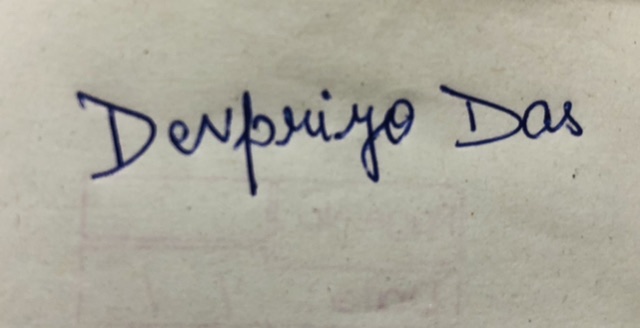 Devpriyo Das